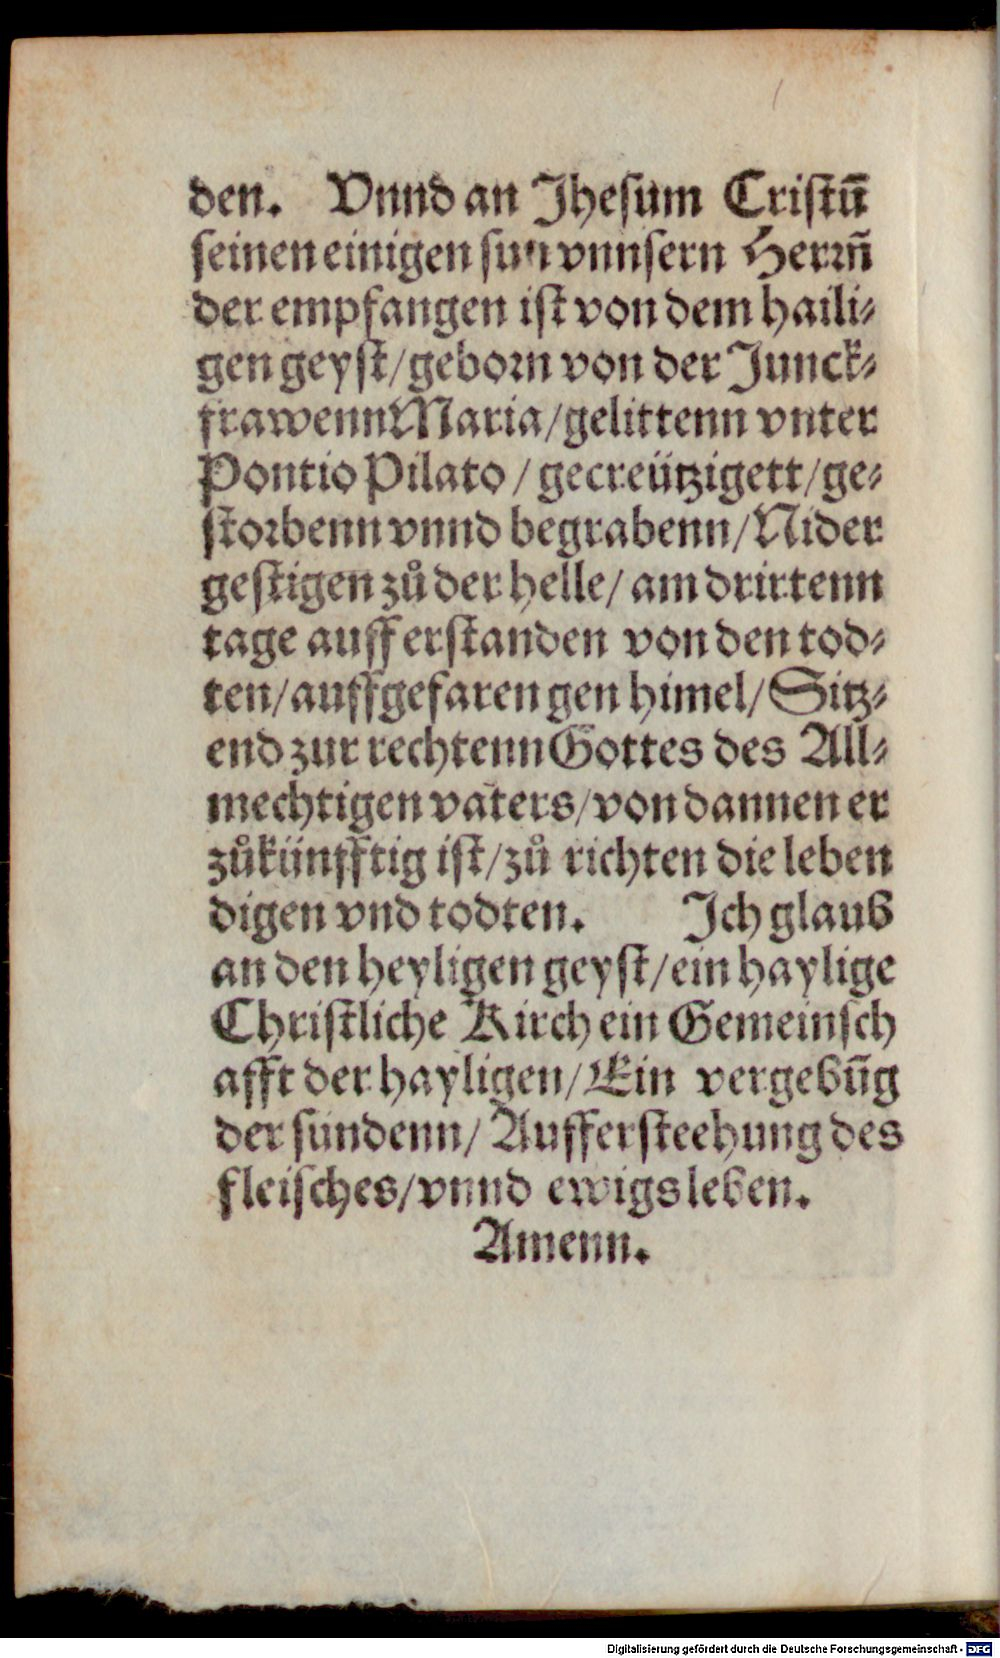 den. Vnnd an Jhesum Cristū
seinen einigen sun vnnsern Herrn̄
der empfangen ist von dem haili-
gen geyst/geborn von der Junck-
frawenn Maria/gelittenn vnter
Pontio Pilato/gecreützigett/ge-
storbenn vnnd begrabenn/Nider
gestigen zů der helle/am drittenn
tage aufferstanden von den tod-
ten/auffgefaren gen himel/Sitz-
end zur rechtenn Gottes des All-
mechtigen vaters/von dannen er
zůkünfftig ist/zů richten die leben
digen vnd todten. Jch glaub
an den heyligen geyst/ein haylige
Christliche Kirch ein Gemeinsch
afft der hayligen/Ein vergebūg
der sündenn/Auffersteehung des
fleisches/vnnd ewigs leben.
Amenn.
Digitalisierung gefördert durch die Deutsche Forschungsgemeinschaft - DFG